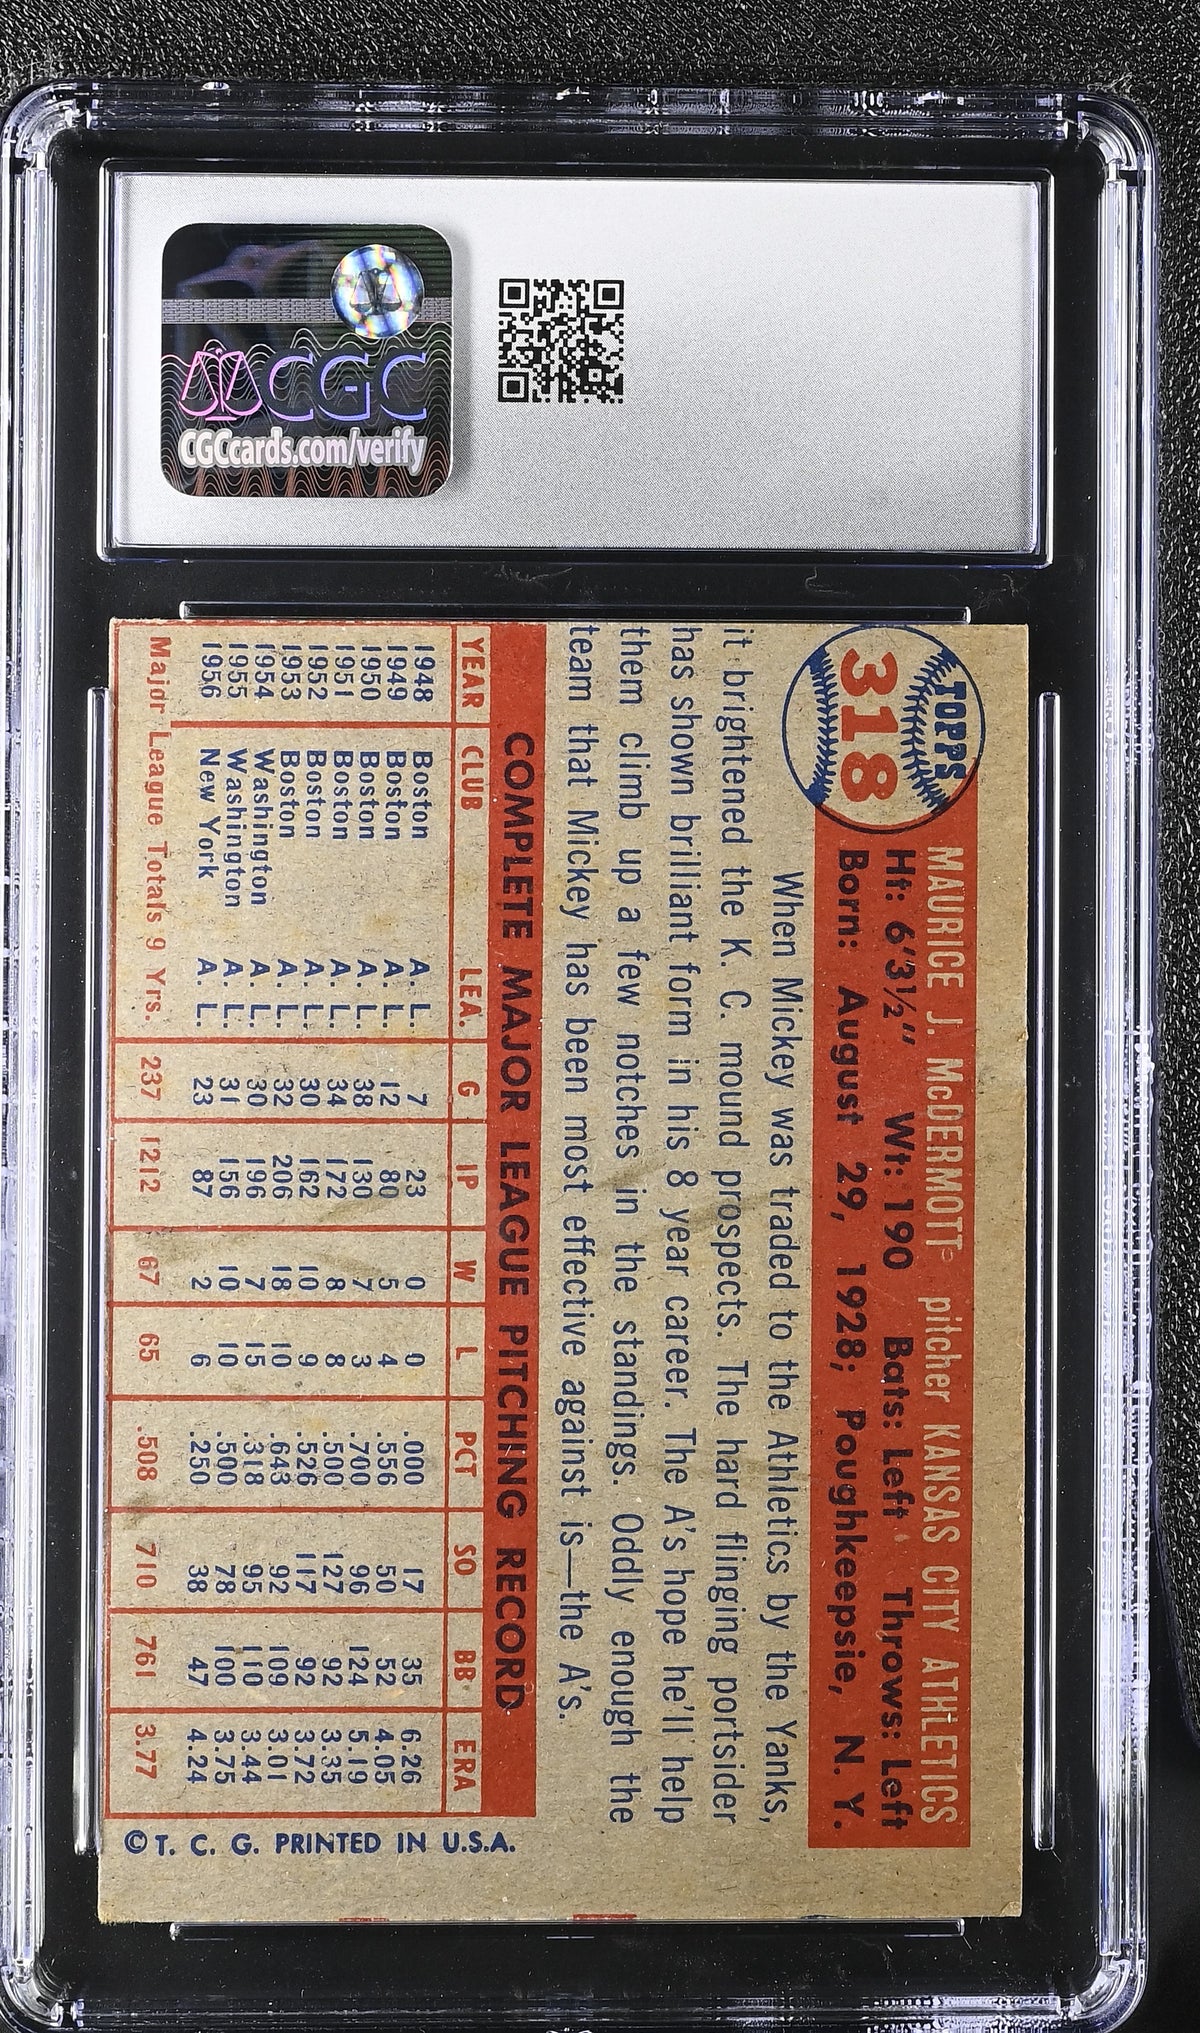 CGC
CGCcards.com/verify
TOPPS
318
MAURICE J. McDERMOTT® pitcher KANSAS CITY ATHLETICS
Ht: 6'3½" Wt: 190 Bats: Left Throws: Left
Born: August 29, 1928; Poughkeepsie, N. Y.
When Mickey was traded to the Athletics by the Yanks,
it brightened the K. C. mound prospects. The hard flinging portsider
has shown brilliant form in his 8 year career. The A's hope he'll help
them climb up a few notches in the standings. Oddly enough the
team that Mickey has been most effective against is—the A's.
COMPLETE MAJOR LEAGUE PITCHING RECORD
YEAR CLUB LEA. G IP W L PCT SO BB ERA
1948 Boston A. L. 7 23 0 0 .000 17 35 6.26
1949 Boston A. L. 12 80 5 4 .556 50 52 4.05
1950 Boston A. L. 38 130 7 3 .700 96 124 5.19
1951 Boston A. L. 34 172 8 8 .500 127 92 3.35
1952 Boston A. L. 30 162 10 9 .526 117 92 3.72
1953 Boston A. L. 32 206 18 10 .643 92 109 3.01
1954 Washington A. L. 30 196 7 15 .318 95 110 3.44
1955 Washington A. L. 31 156 10 10 .500 78 100 3.75
1956 New York A. L. 23 87 2 6 .250 38 47 4.24
Major League Totals 9 Yrs. 237 1212 67 65 .508 710 761 3.77
© T. C. G. PRINTED IN U.S.A.